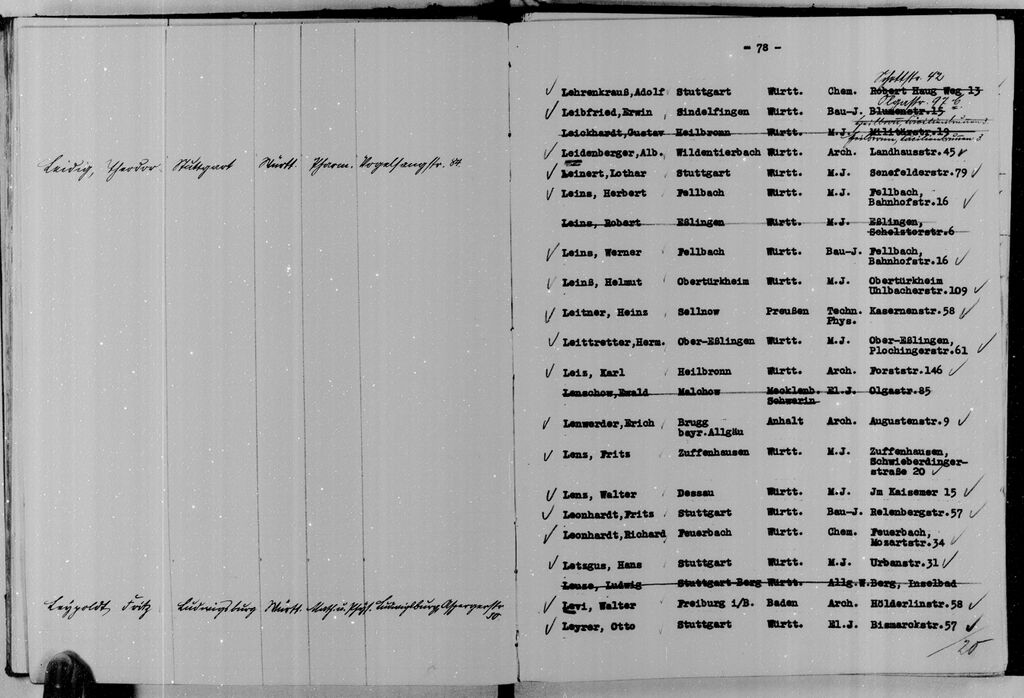 Leidig, Theodor Stuttgart Württ. Pharm. Vogelsangstr. 54.
Leypoldt Fritz Ludwigsburg Württ. Math. u. Phys. Ludwigsburg, Aspergerstr.
50.
- 78 -
Schottstr. 42
Lehrenkrauß,Adolf Stuttgart Württ. Chem. Robert Haug Weg 13
Olgastr. 97 b
Leibfried,Erwin Sindelfingen Württ. Bau-J. Blumenstr.15
Heilbronn, Cäcilienbrunnen 3
Leickhardt,Gustav Heilbronn Württ. M.J. Militärstr.19
Heilbronn, Cäcilienbrunnen 3
Leidenberger,Alb. Wildentierbach Württ. Arch. Landhausstr.45
Leinert,Lothar Stuttgart Württ. M.J. Senefelderstr.79
Leins, Herbert Fellbach Württ. M.J. Fellbach,
Bahnhofstr.16
Leins, Robert Eßlingen Württ. M.J. Eßlingen,
Schelztorstr.6
Leins, Werner Fellbach Württ. Bau-J. Fellbach,
Bahnhofstr.16
Leinß, Helmut Obertürkheim Württ. M.J. Obertürkheim
Uhlbacherstr.109
Leitner, Heinz Sellnow Preußen Techn. Kasernenstr.58
Phys.
Leittretter,Herm. Ober-Eßlingen Württ. M.J. Ober-Eßlingen,
Plochingerstr.61
Leiz, Karl Heilbronn Württ. Arch. Forststr.146
Lenschow,Ewald Malchow Mecklenb. El.J. Olgastr.85
Schwerin
Lenwerder,Erich Brugg Anhalt Arch. Augustenstr.9
bayr.Allgäu
Lenz, Fritz Zuffenhausen Württ. M.J. Zuffenhausen,
Schwieberdinger-
straße 20
Lenz, Walter Dessau Württ. M.J. Jm Kaisemer 15
Leonhardt,Fritz Stuttgart Württ. Bau-J. Relenbergstr.57
Leonhardt,Richard Feuerbach Württ. Chem. Feuerbach,
Mozartstr.34
Letzgus, Hans Stuttgart Württ. M.J. Urbanstr.31
Leuze, Ludwig Stuttgart-Berg Württ. Allg.W.Berg, Inselbad
Levi, Walter Freiburg i/B. Baden Arch. Hölderlinstr.58
Leyrer, Otto Stuttgart Württ. El.J. Bismarckstr.57
/20